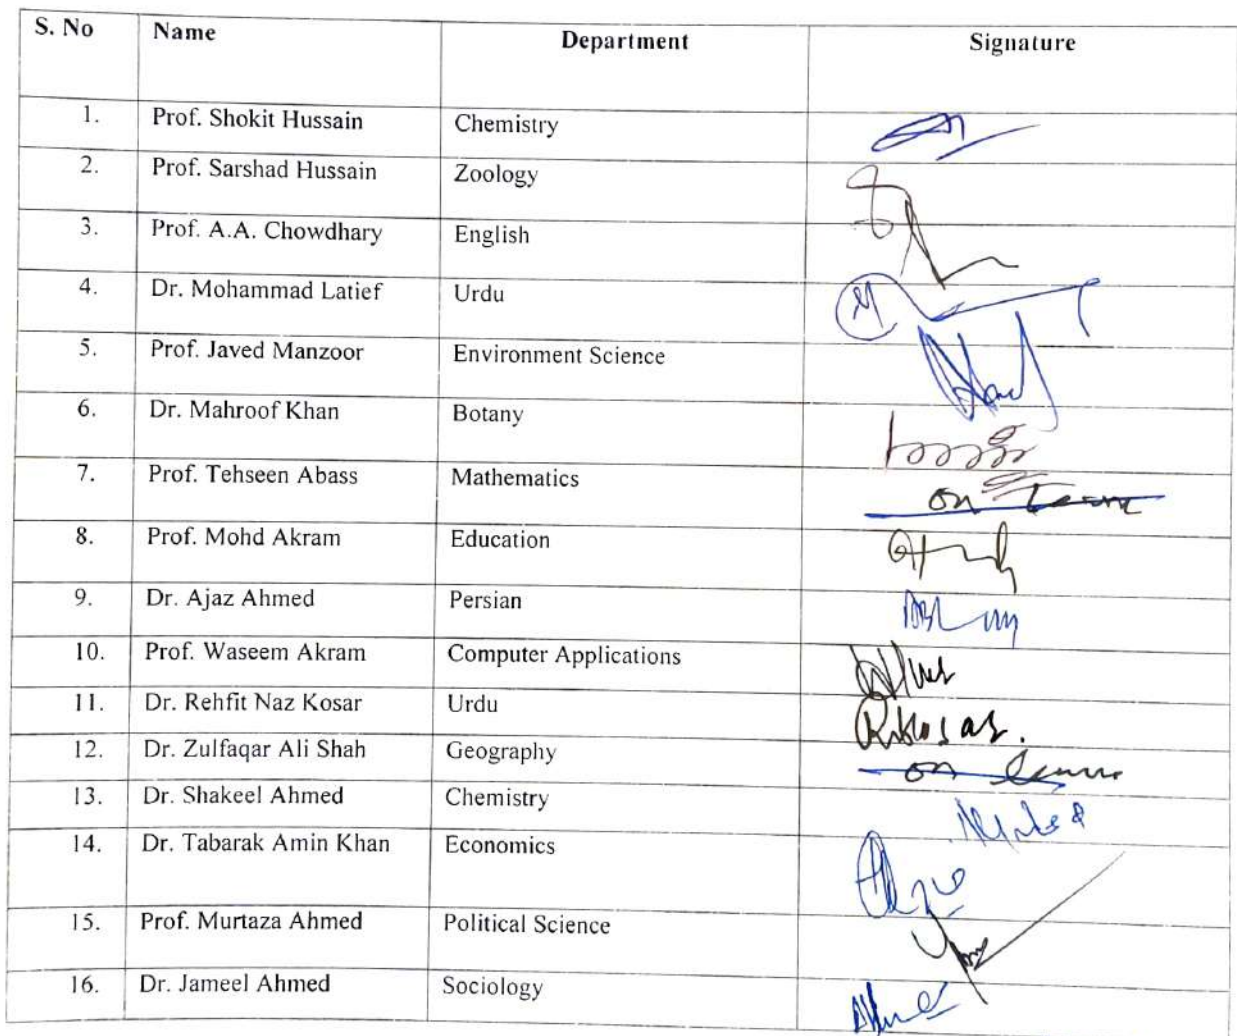 S. No Name Department Signature
1. Prof. Shokit Hussain Chemistry
2. Prof. Sarshad Hussain Zoology
3. Prof. A.A. Chowdhary English
4. Dr. Mohammad Latief Urdu
5. Prof. Javed Manzoor Environment Science
6. Dr. Mahroof Khan Botany
7. Prof. Tehseen Abass Mathematics on
8. Prof. Mohd Akram Education
9. Dr. Ajaz Ahmed Persian
10. Prof. Waseem Akram Computer Applications
11. Dr. Rehfit Naz Kosar Urdu
12. Dr. Zulfaqar Ali Shah Geography on
13. Dr. Shakeel Ahmed Chemistry
14. Dr. Tabarak Amin Khan Economics
15. Prof. Murtaza Ahmed Political Science
16. Dr. Jameel Ahmed Sociology